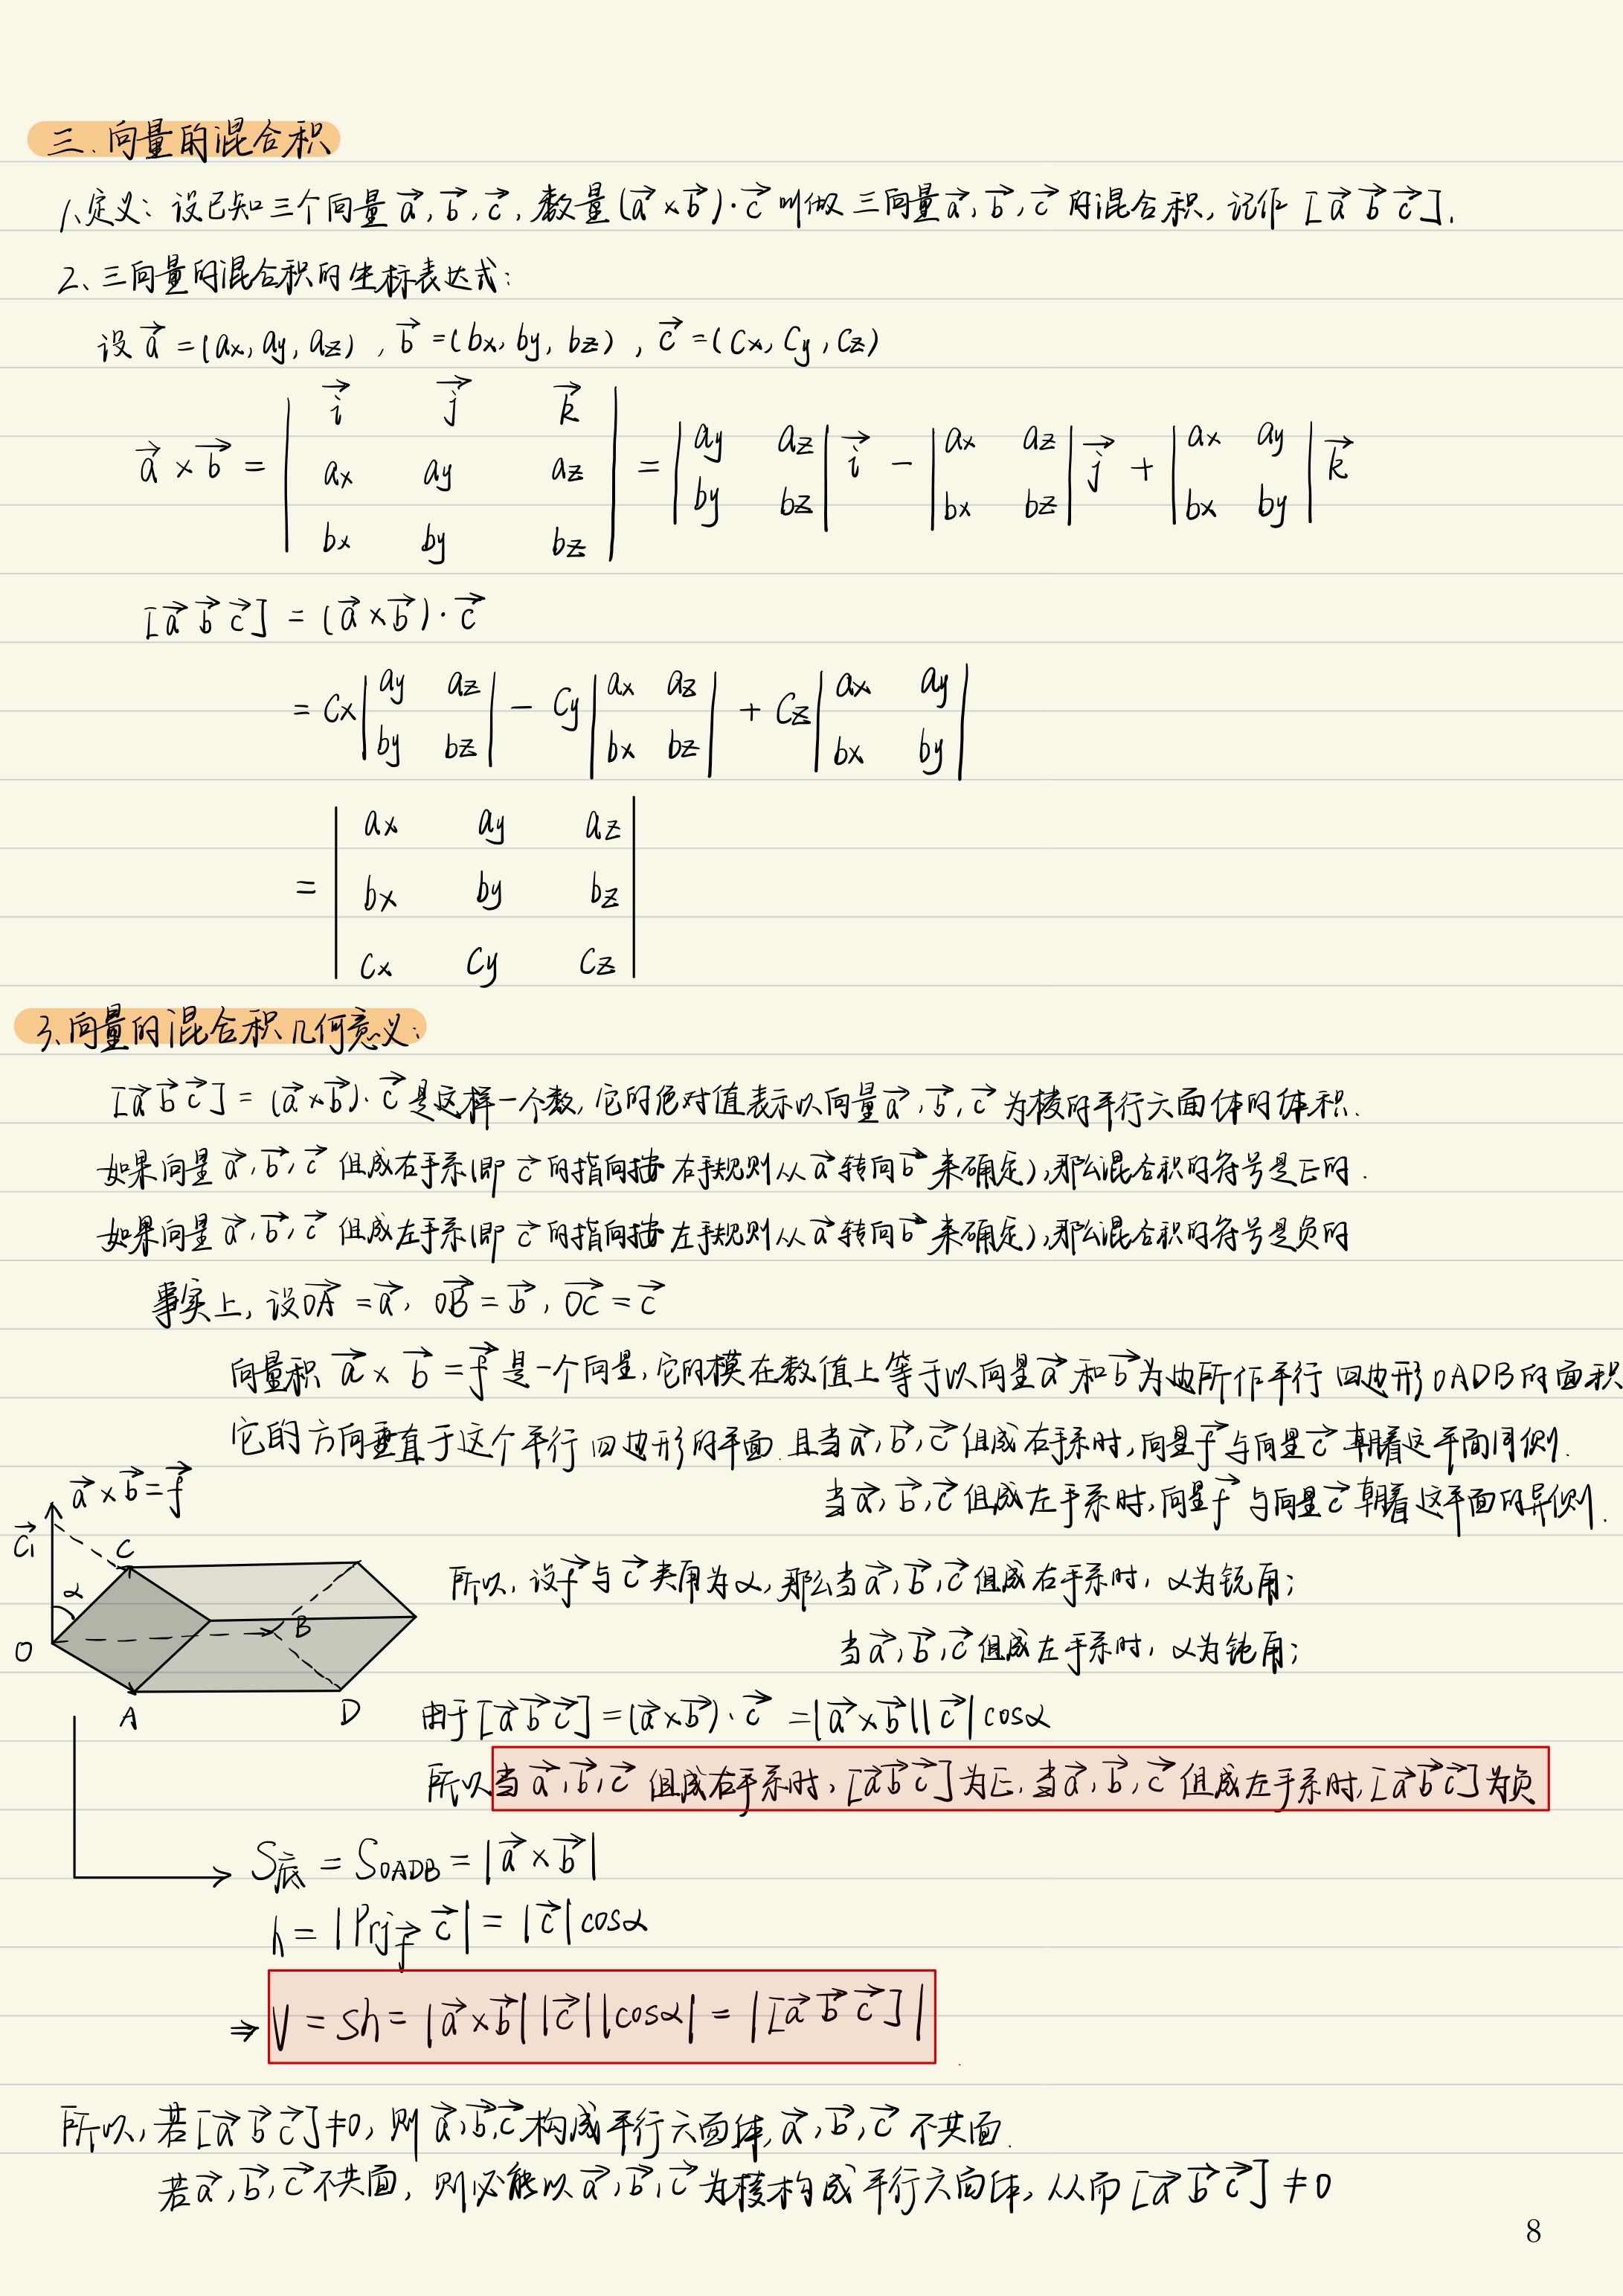 三.向量的混合积
1、定义：设已知三个向量 a⃗, b⃗, c⃗, 数量(a⃗×b⃗)·c⃗ 叫做 三向量a⃗, b⃗, c⃗ 的混合积, 记作 [a⃗ b⃗ c⃗].
2、三向量的混合积的坐标表达式：
设 a⃗ = (ax, ay, az), b⃗ = (bx, by, bz), c⃗ = (Cx, Cy, Cz)
a⃗ × b⃗ = | i⃗ j⃗ k⃗ ; ax ay az ; bx by bz | = | ay az ; by bz | i⃗ - | ax az ; bx bz | j⃗ + | ax ay ; bx by | k⃗
[a⃗ b⃗ c⃗] = (a⃗×b⃗)·c⃗
= Cx | ay az ; by bz | - Cy | ax az ; bx bz | + Cz | ax ay ; bx by |
= | ax ay az ; bx by bz ; Cx Cy Cz |
3、向量的混合积几何意义：
[a⃗ b⃗ c⃗] = (a⃗×b⃗)·c⃗ 是这样一个数, 它的绝对值表示以向量a⃗, b⃗, c⃗ 为棱的平行六面体的体积.
如果向量 a⃗, b⃗, c⃗ 组成右手系(即 c⃗ 的指向按 右手规则从 a⃗ 转向 b⃗ 来确定), 那么混合积的符号是正的.
如果向量 a⃗, b⃗, c⃗ 组成左手系(即 c⃗ 的指向按 左手规则从 a⃗ 转向 b⃗ 来确定), 那么混合积的符号是负的
事实上, 设OA⃗ = a⃗, OB⃗ = b⃗, OC⃗ = c⃗
向量积 a⃗ × b⃗ = f⃗ 是一个向量, 它的模在数值上等于以向量a⃗ 和 b⃗ 为边所作平行四边形OADB的面积
它的方向垂直于这个平行四边形的平面. 且当a⃗, b⃗, c⃗ 组成右手系时, 向量f⃗ 与向量c⃗ 朝着这平面同侧.
当a⃗, b⃗, c⃗ 组成左手系时, 向量f⃗ 与向量c⃗ 朝着这平面的异侧.
a⃗ × b⃗ = f⃗
C⃗₁
C
α
O
B
A
D
所以, 设f⃗ 与 c⃗ 夹角为α, 那么当a⃗, b⃗, c⃗ 组成右手系时, α为锐角;
当a⃗, b⃗, c⃗ 组成左手系时, α为钝角;
由于[a⃗ b⃗ c⃗] = (a⃗×b⃗)·c⃗ = |a⃗×b⃗||c⃗| cosα
所以当 a⃗, b⃗, c⃗ 组成右手系时, [a⃗ b⃗ c⃗]为正, 当a⃗, b⃗, c⃗ 组成左手系时, [a⃗ b⃗ c⃗]为负
S底 = SOADB = |a⃗ × b⃗|
h = |Prj f⃗ c⃗| = |c⃗| cosα
⇒ V = Sh = |a⃗×b⃗| |c⃗| |cosα| = |[a⃗ b⃗ c⃗]|
所以, 若[a⃗ b⃗ c⃗]≠0, 则 a⃗, b⃗, c⃗ 构成平行六面体, a⃗, b⃗, c⃗ 不共面.
若a⃗, b⃗, c⃗ 不共面, 则必能以 a⃗, b⃗, c⃗ 为棱构成平行六面体, 从而 [a⃗ b⃗ c⃗] ≠ 0
8